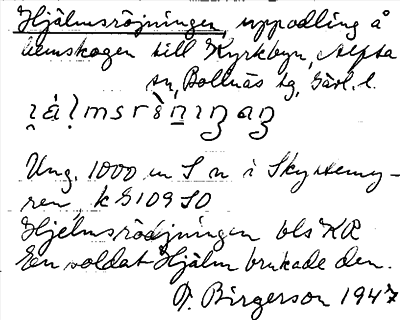 Hjälmsröjningen, uppodling å
hemskogen till Kyrkbyn, Alfta
sn, Bollnäs tg, Gävl. l.
Ung. 1000 m S n i Skyttemy-
ren, k G 109 SO
Hjelmsrödjningen bls KR
En soldat Hjälm brukade den.
Birgerson 1947